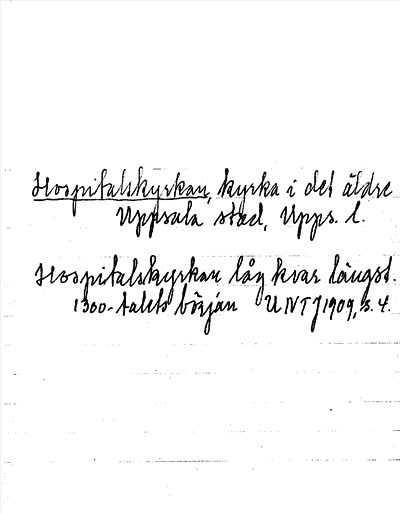 Hospitalskyrkan, kyrka i det äldre
Uppsala stad, Upps. l.
Hospitalskyrkan låg kvar längst.
1300-talets början UNT J 1909, s. 4.